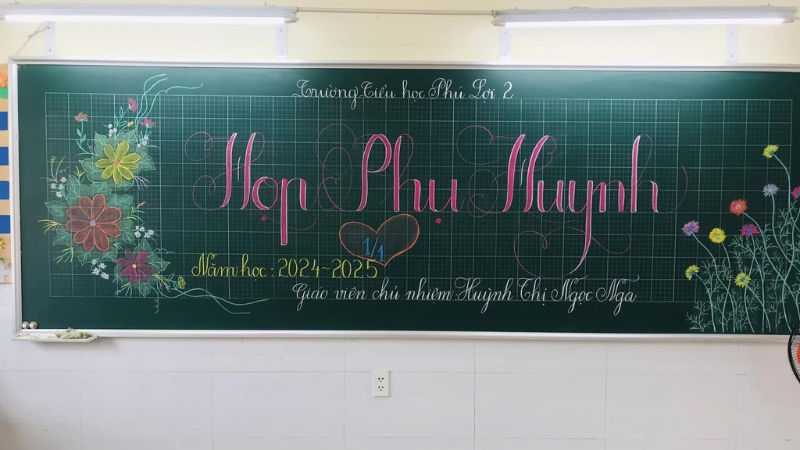 Trường Tiểu học Phú Lợi 2
Họp Phụ Huynh
1/1
Năm học: 2024-2025
Giáo viên chủ nhiệm Huỳnh Thị Ngọc Nga